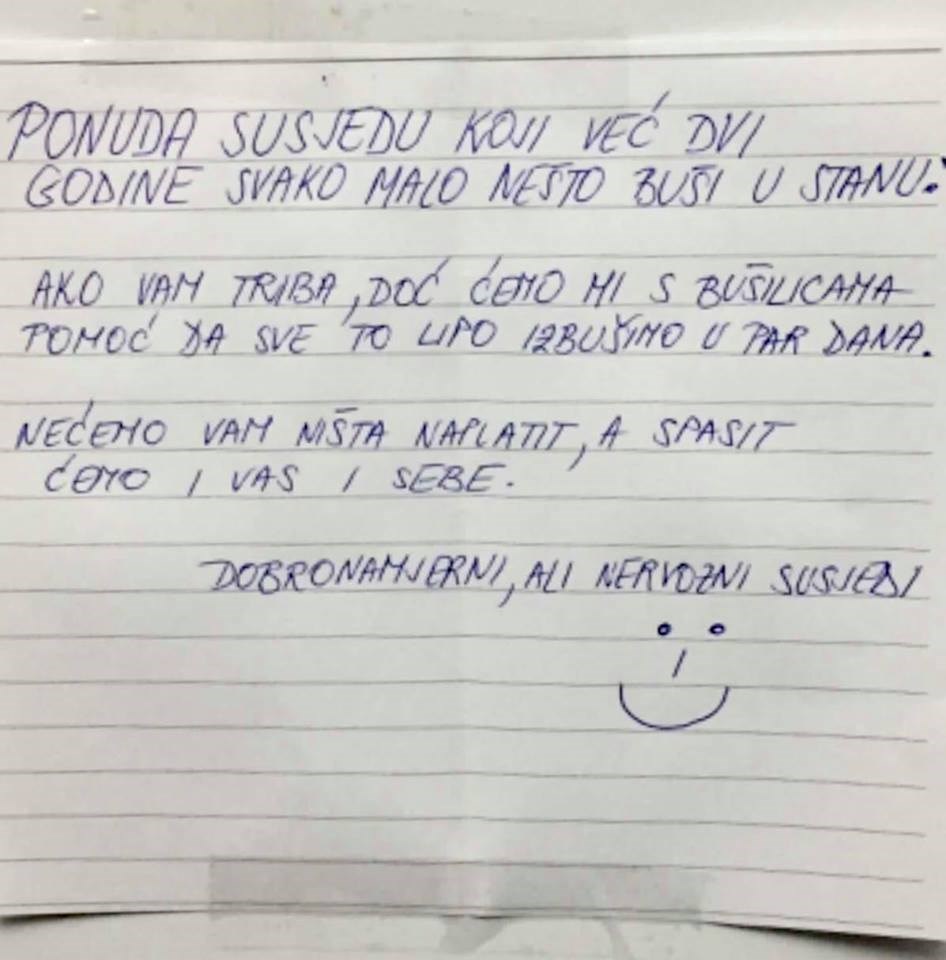 PONUDA SUSJEDU KOJI VEĆ DVI
GODINE SVAKO MALO NEŠTO BUŠI U STANU:
AKO VAM TRIBA, DOĆ ĆEMO MI S BUŠILICAMA
POMOĆ DA SVE TO LIPO IZBUŠIMO U PAR DANA.
NEĆEMO VAM NIŠTA NAPLATIT, A SPASIT
ĆEMO I VAS I SEBE.
DOBRONAMJERNI, ALI NERVOZNI SUSJEDI